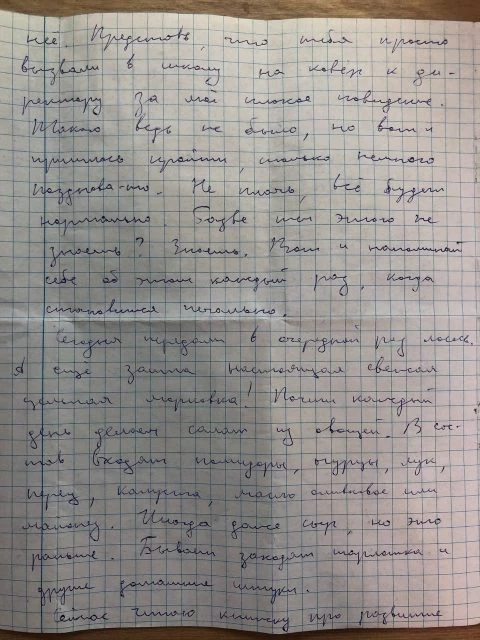 нее. Представь, что тебя просто
вызвали в школу на ковёр к ди-
ректору за моё плохое поведение.
Такого ведь не было, но вот и
пришлось пройти, только немного
поздновато. Не плачь, всё будет
нормально. Разве ты этого не
знаешь? Знаешь. Вот и напоминай
себе об этом каждый раз, когда
становится печально.
Сегодня передали в очередной раз лосось.
А ещё зашла настоящая свежая
зелёная морковка! Почти каждый
день делаем салат из овощей. В сос-
тав входят помидоры, огурцы, лук,
перец, капуста, масло оливковое или
майонез. Иногда даже сыр, но это
раньше. Бывает заходят шарлотка и
другие домашние штуки.
Сейчас читаю книжку про развитие